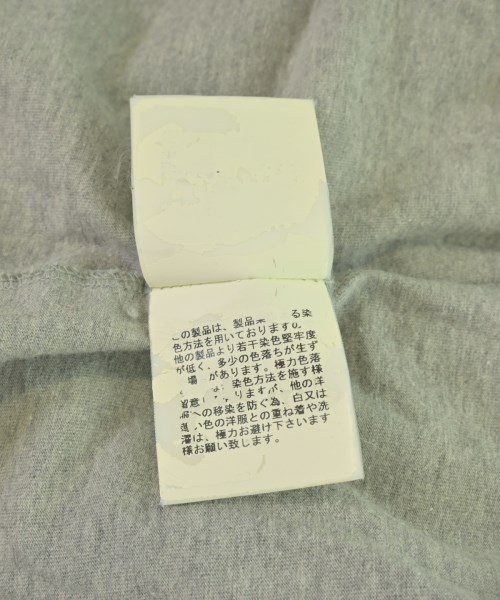 この製品は、製品 る染
色方法を用いております。
他の製品より若干染色堅牢度
が低く、多少の色落ちが生ず
場 があります。極力色落
は 染色方法を施す様
意 りますが、他の洋
への移染を防ぐ為、白又は
い色の洋服との重ね着や洗
濯は、極力お避け下さいます
様お願い致します。